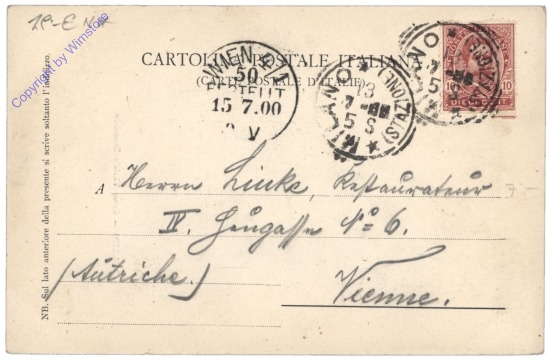 CARTOLINA POSTALE ITALIANA
(CARTE POSTALE D'ITALIE)
WIEN 4/1
50
BESTELLT
15 7.00
V
MILANO
13
7-
5 S
(STAZIONE)
MILANO
7-
5 S
(STAZIONE)
10
10
DIECI CENT
A Herrn Linke, Restaurateur
IV. Heugasse No 6.
(Autriche.)
Vienne.
NB. Sul lato anteriore della presente si scrive soltanto l'indirizzo.
Copyright by Wimstore